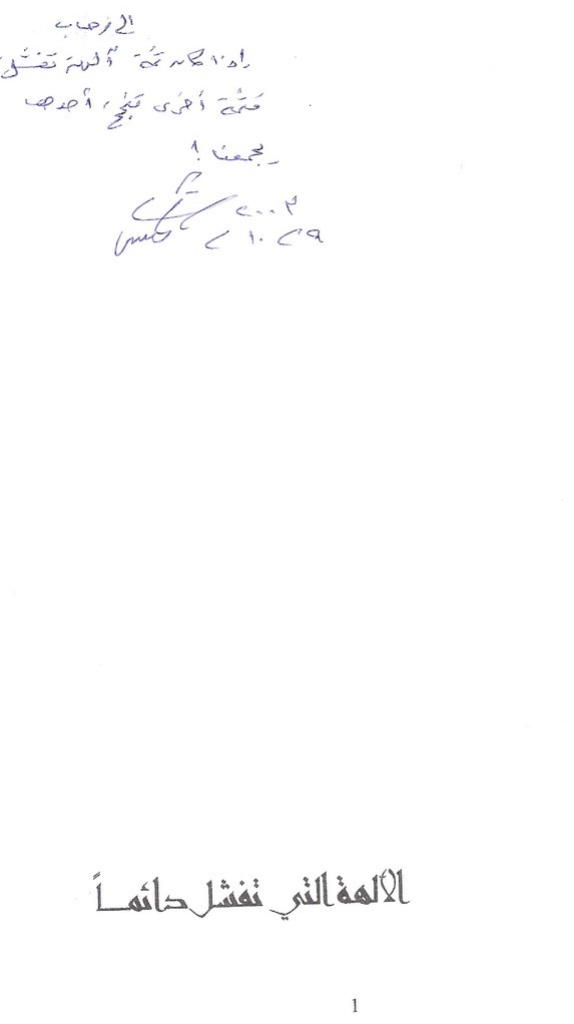 إلى رحاب
إذا كان ثمّة آلهة تفشل،
فثمّة أخرى تنجح، أحدها
يجمعنا!
٢٠٠٣
٢٩ / ١٠ /
الآلهة التي تفشل دائماً
1